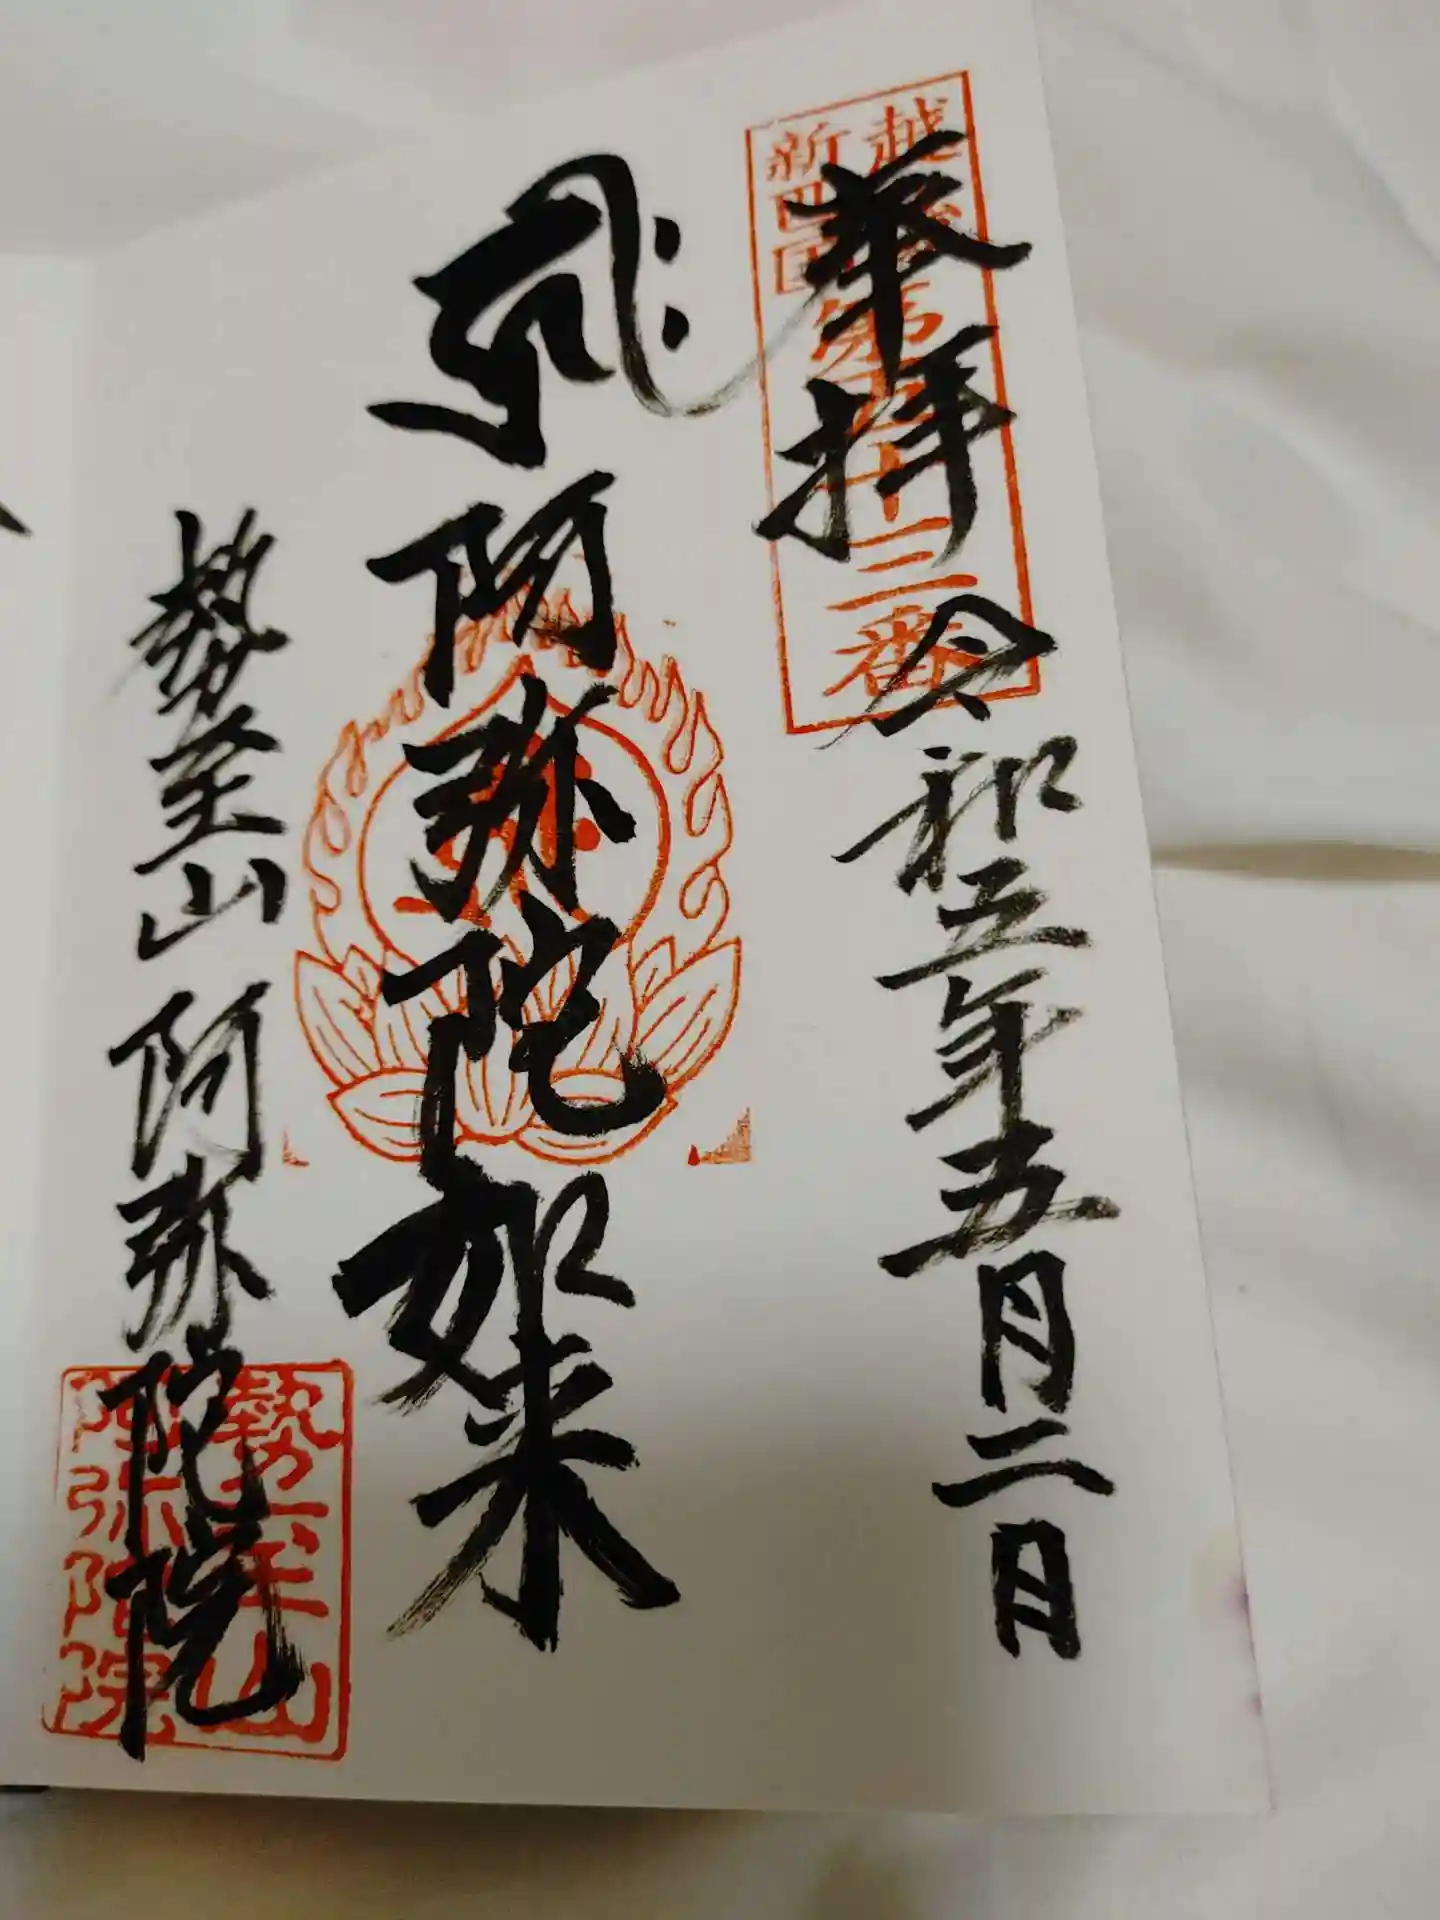 奉拝 令和五年五月二日
越後
新四国
第五十三番
阿弥陀如来
勢至山 阿弥陀院
勢至山
阿弥陀院